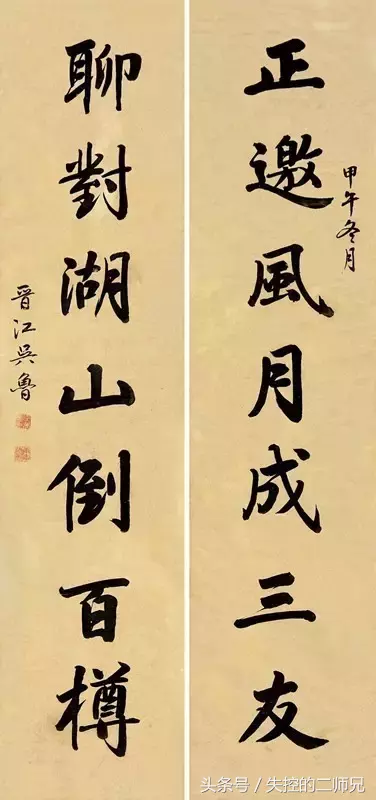 正邀風月成三友
甲午冬月
聊對湖山倒百樽
晉江吳魯
头条号 / 失控的二师兄